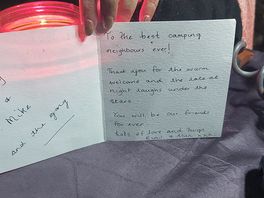 &
Mike
and the gang
To the best camping
neighbours ever!
Thank you for the warm
welcome and the late at
night laughs under the
stars
You will be our friends
for ever
Lots of love and hugs
xxx